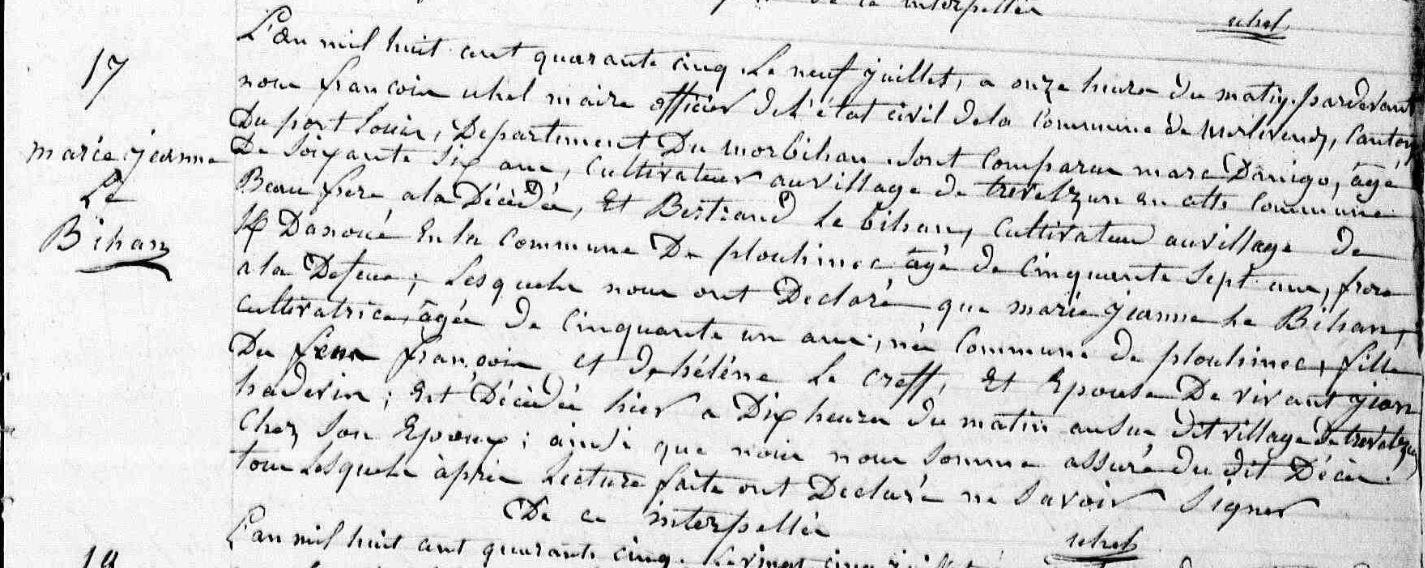 de ce interpellée
uhel
17
marie jeanne
Le
Bihan
L'an mil huit cent quarante cinq. Le neuf juillet, a onze heures du matin. pardevant
nous françois uhel maire officier de l'état civil de la commune de merlevenez, canton
Du port Louis, Département Du morbihan. sont comparus marc Danigo, âgé
De soixante six ans, cultivateur au village de trevelzun en cette commune
Beau frere a la Décédée, Et Bertrand Le bihan, cultivateur au village de
en la commune De plouhinec âgé de cinquante sept ans, frere
a la Defeue; Lesquels nous ont Declaré que marie jeanne Le Bihan,
cultivatrice, âgée de cinquante un ans, née commune de plouhinec, fille
Du feux françois et de héléne Le creff, Et Epouse De vivant jean
; Est Décédée hier a Dix heures du matin au sus dit village De trevelzun
chez son Epoux; ainsi que nous nous somme assuré du dit Décès.
tous Lesquels àprès Lecture faite ont Declaré ne savoir signer
De ce interpellés
uhel
18
L'an mil huit cent quarante cinq. Le vingt cinq juillet